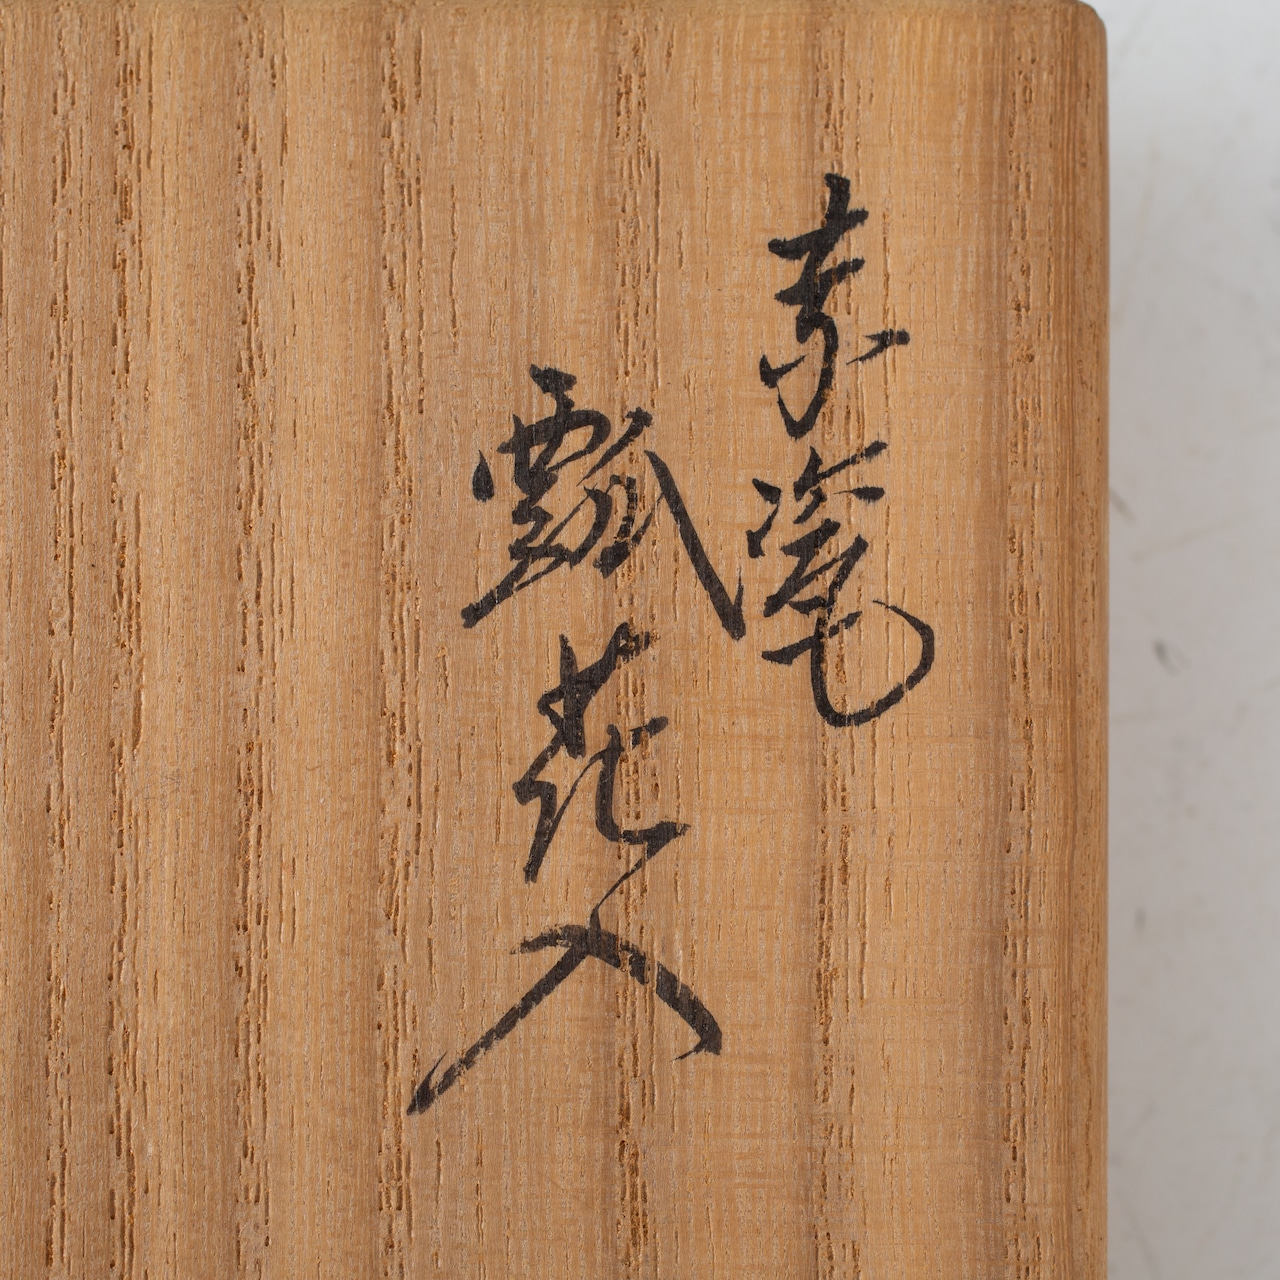 素瓷
瓢花入